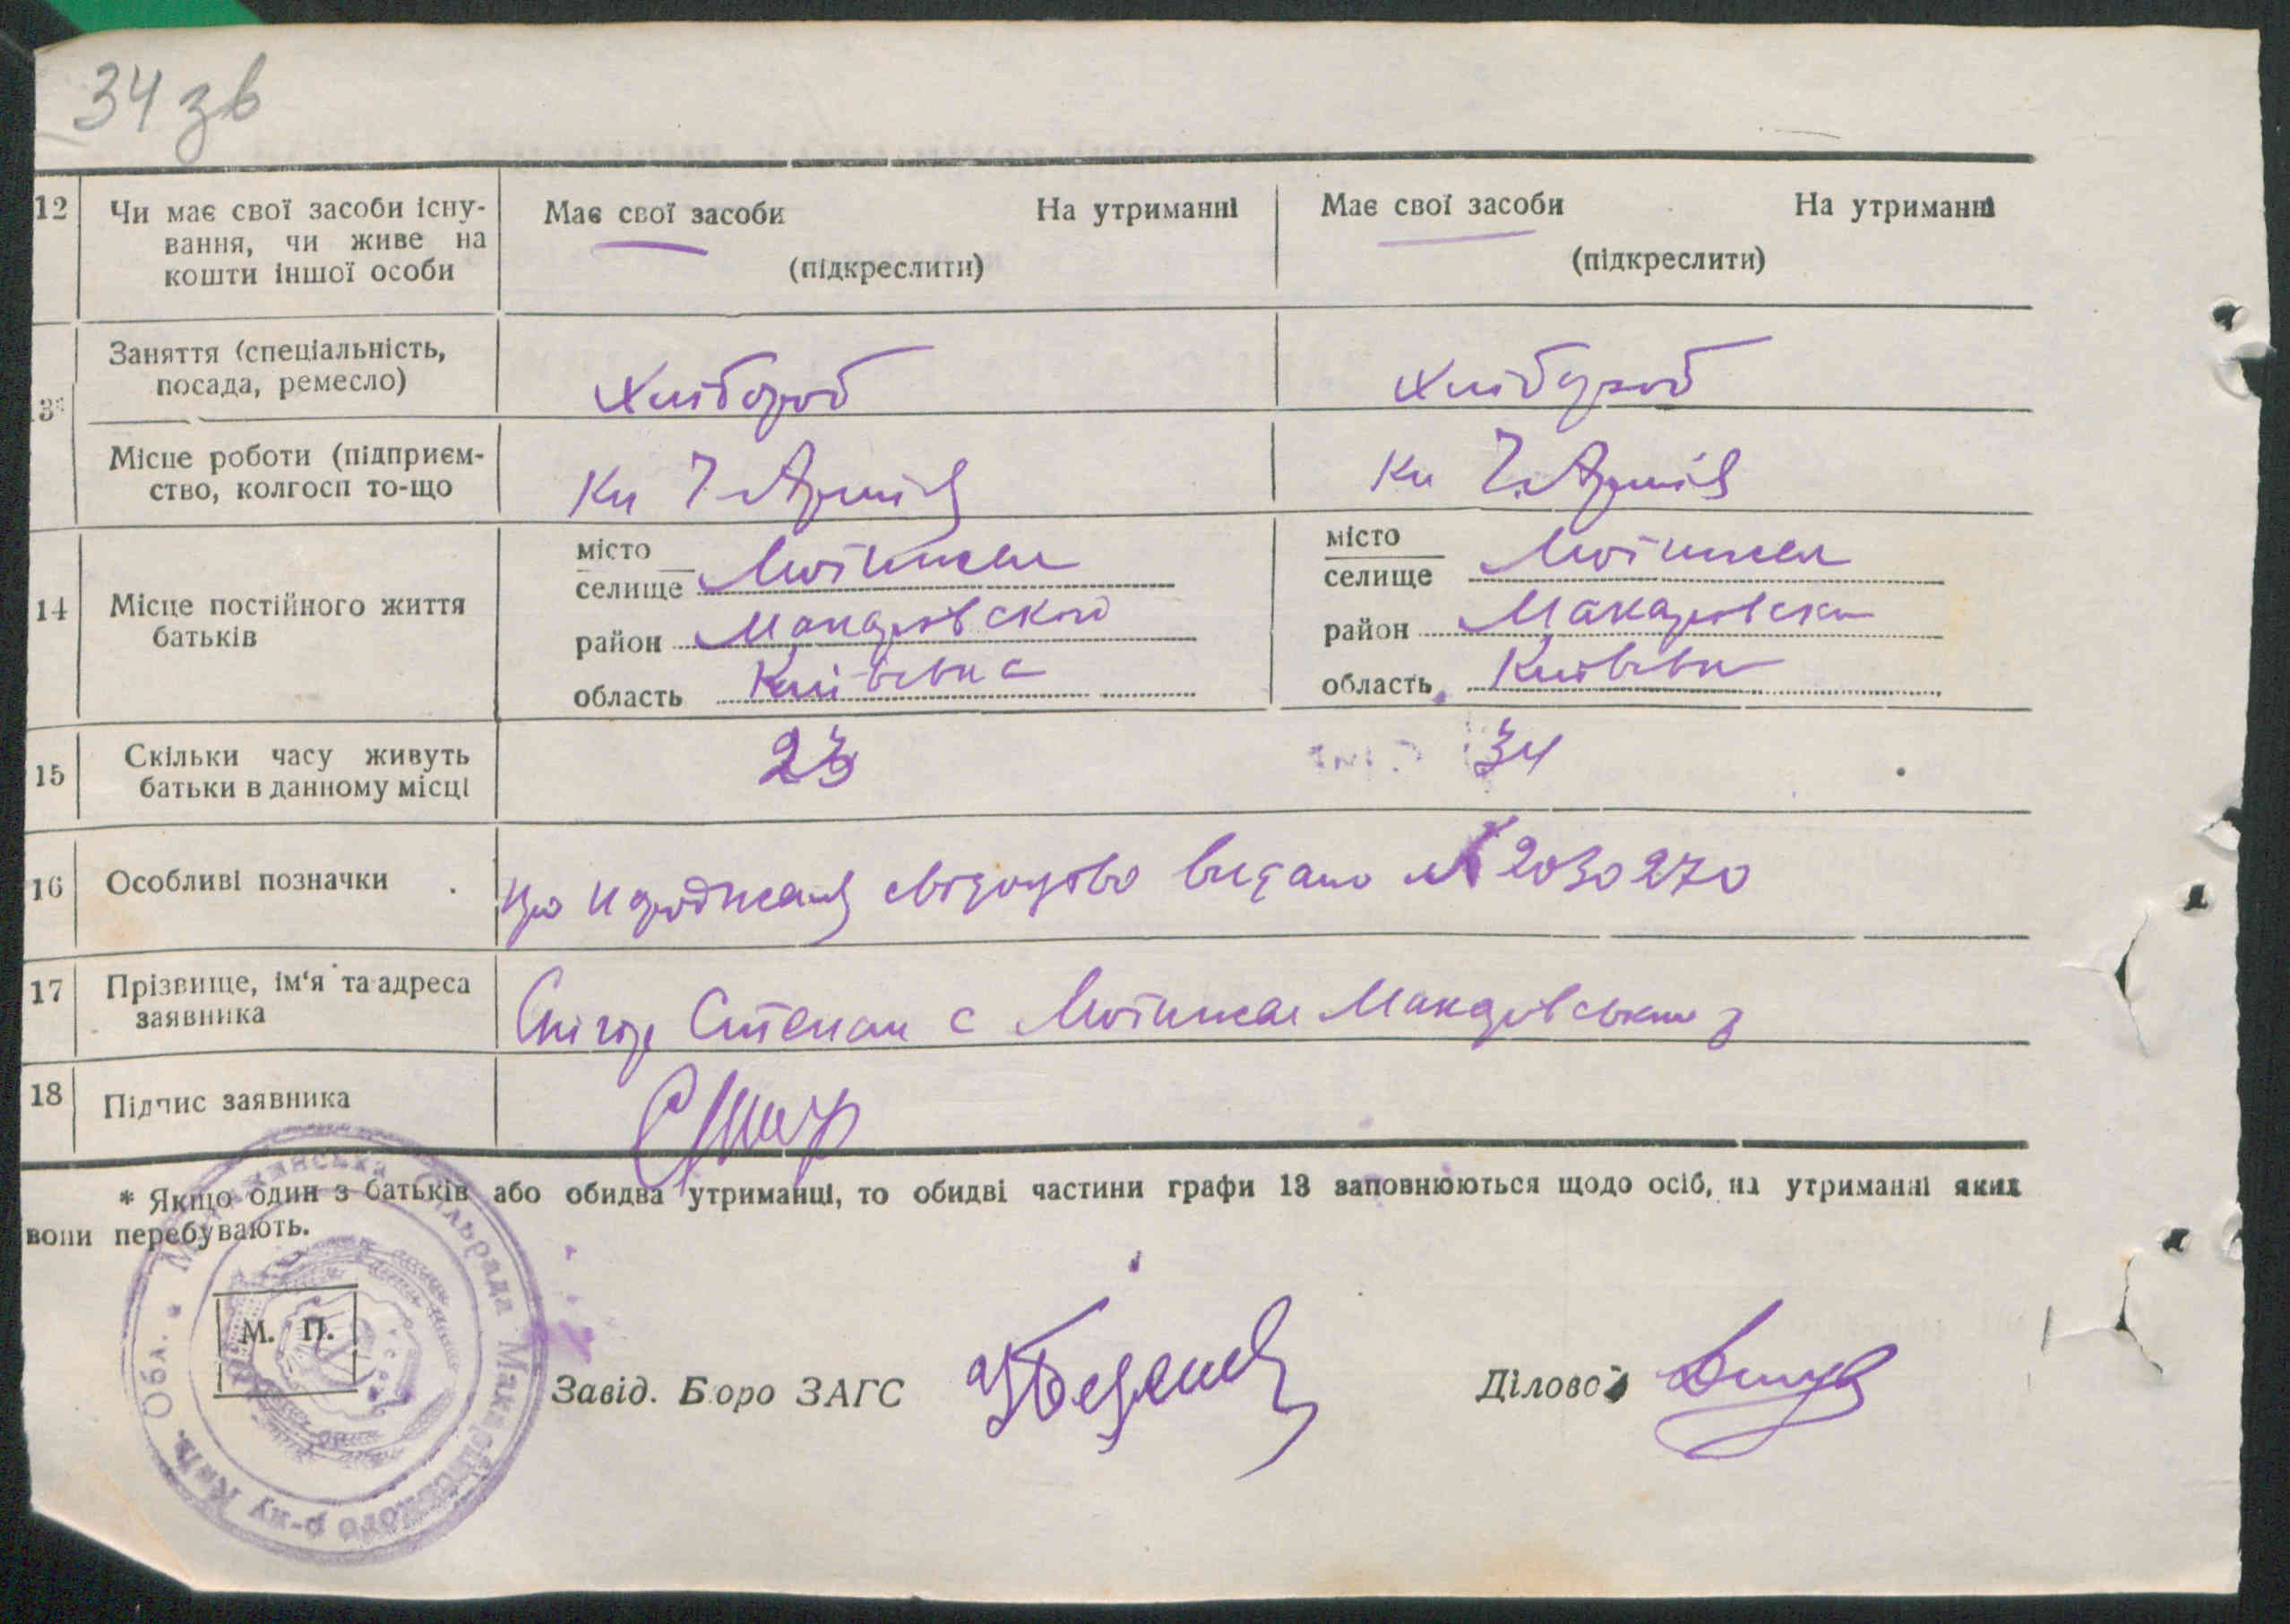 34 зв
12 Чи має свої засоби існу- Має свої засоби На утриманні Має свої засоби На утриманні
вання, чи живе на
кошти іншої особи (підкреслити) (підкреслити)
Заняття (спеціальність,
посада, ремесло) Хлібороб Хлібороб
Місце роботи (підприєм-
ство, колгосп то-що Армія Армія
місто місто
селище Мотижин селище Мотижин
14 Місце постійного життя
батьків
район Макарівского район Макарівск
область область
15 Скільки часу живуть 23 34
батьки в данному місці
16 Особливі позначки видано № 2030270
17 Прізвище, ім'я та адреса
заявника Степан с Мотижин
18 Підпис заявника
* Якщо один з батьків або обидва утриманці, то обидві частини графи 13 заповнюються щодо осіб, на утриманні яких
вони перебувають.
М. П.
Завід. Бюро ЗАГС Діловод
Сільрада Макарівського р-ну Київ. Обл.